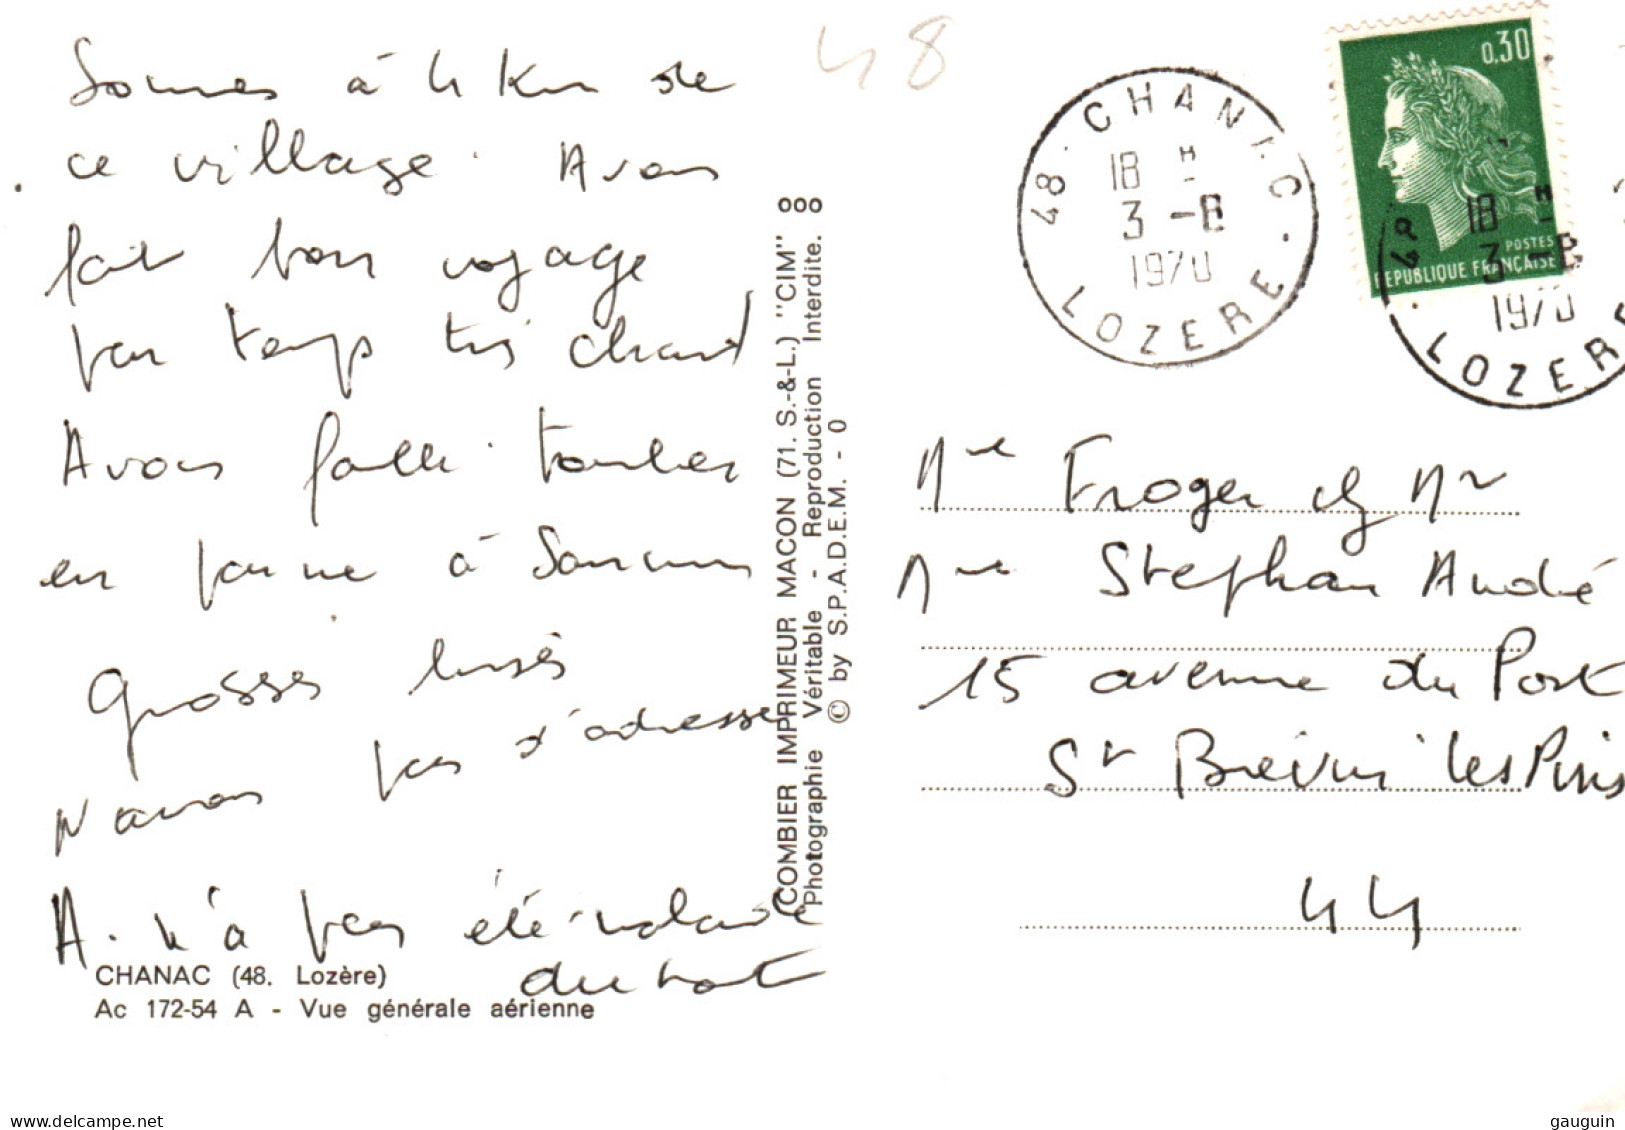 48
Sommes à 4 Km de
ce village. Avons
fait bon voyage
par temps très chaud
Avons failli tomber
en panne à Saumur
Grosses bises
N'avons pas d'adresse
A. n'a pas été malade
du tout
CHANAC (48. Lozère)
Ac 172-54 A - Vue générale aérienne
COMBIER IMPRIMEUR MACON (71. S.-&-L.) "CIM" 000
Photographie Véritable - Reproduction Interdite.
© by S.P.A.D.E.M. - 0
48 - CHANAC
18 H
3 - 8
1970
LOZERE
0,30
POSTES
REPUBLIQUE FRANÇAISE
18 H
3 - 8
1970
LOZERE
Mme Froger ch Mr
Mme Stephan André
15 avenue du Port
St Brévin les Pins
44
delcampe.net
gauguin